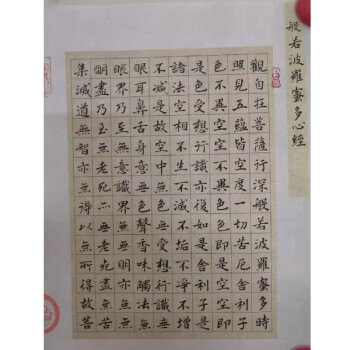 般若波羅蜜多心經
觀自在菩薩行深般若波羅蜜多時
照見五蘊皆空度一切苦厄舍利子
色不異空空不異色色即是空空即
是色受想行識亦復如是舍利子是
諸法空相不生不滅不垢不淨不增
不減是故空中無色無受想行識無
眼耳鼻舌身意無色聲香味觸法無
眼界乃至無意識界無無明亦無無
明盡乃至無老死亦無老死盡無苦
集滅道無智亦無得以無所得故菩